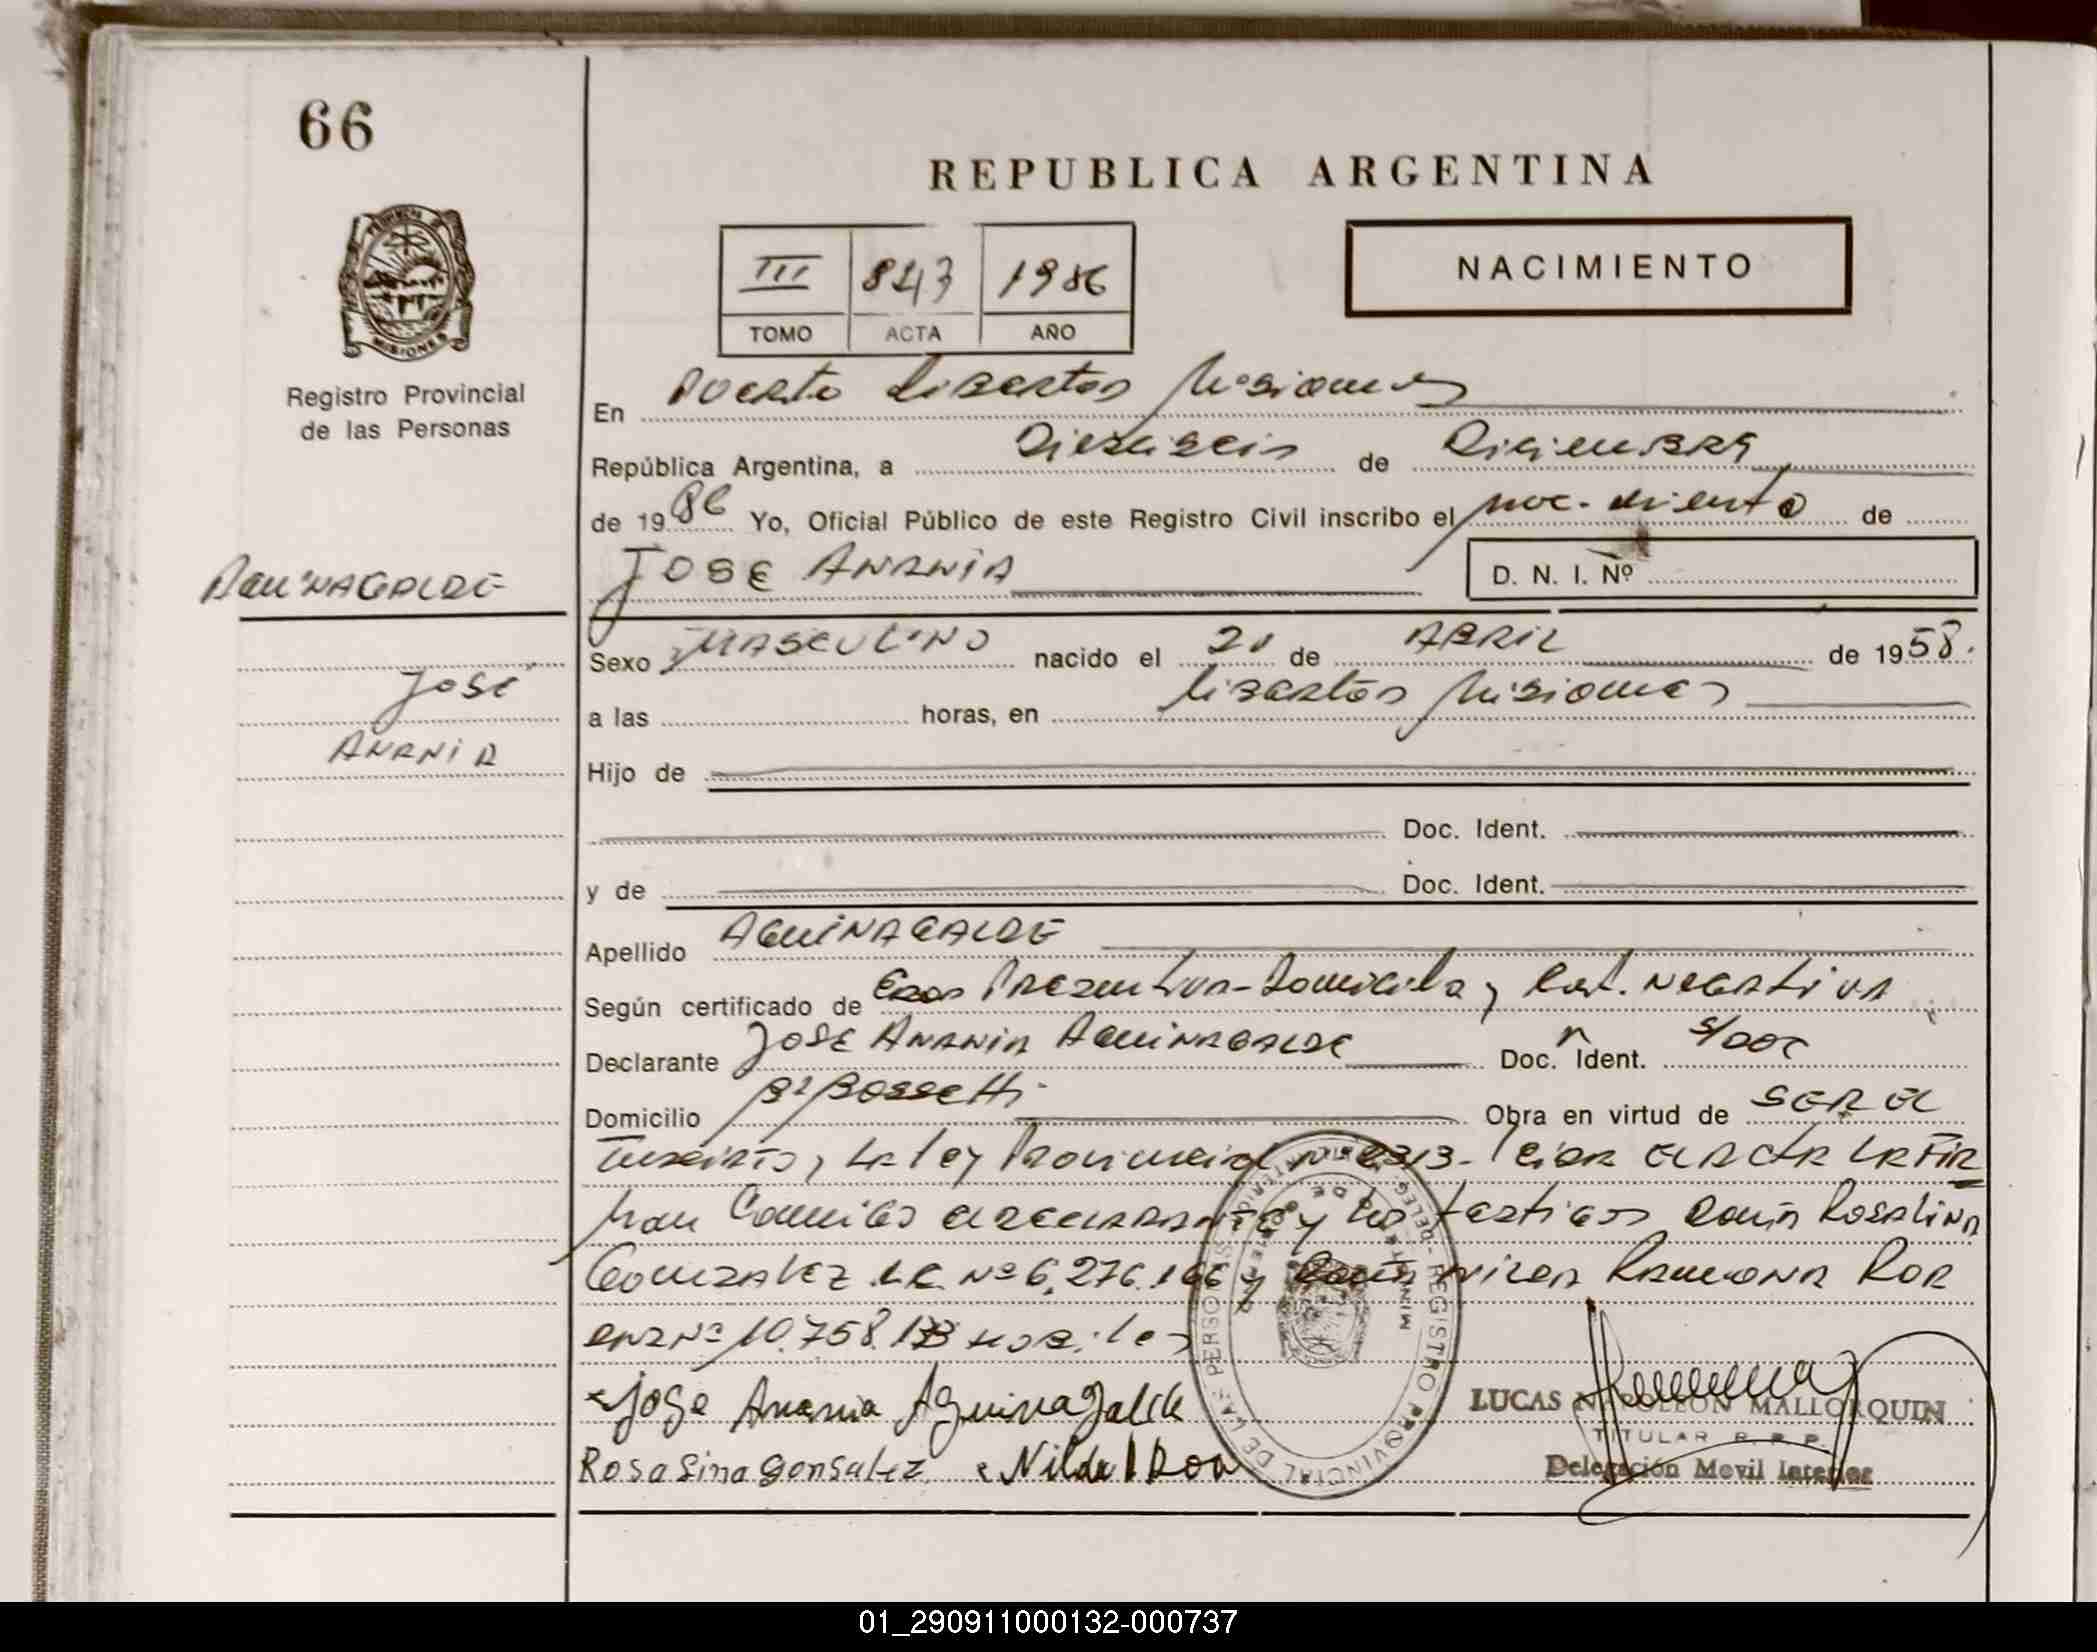 66
REPUBLICA ARGENTINA
III 843 1986
TOMO ACTA AÑO
NACIMIENTO
PROVINCIA
MISIONES
Registro Provincial
de las Personas
En Puerto Libertad Misiones
República Argentina, a Dieciseis de Diciembre
de 1986 Yo, Oficial Público de este Registro Civil inscribo el nac.miento de
JOSE ANANIA
D. N. I. Nº
AGUINAGALDE
JOSÉ
ANANIA
Sexo MASCULINO nacido el 20 de ABRIL de 1958.
a las horas, en Libertad Misiones
Hijo de
Doc. Ident.
y de Doc. Ident.
Apellido AGUINAGALDE
Según certificado de Edad Presuntiva-Domicilio y Cert. NEGATIVA
Declarante JOSE ANANIA AGUINAGALDE Doc. Ident. S/DOC
Domicilio Bº Bossetti Obra en virtud de SER EL
Inscripto, La Ley Provincial nº 2313- Leida EL ACTA LA FIR
man Conmigo el declarante y los testigos Doña Rosalina
Gonzalez L.C. Nº 6.276.166 y Doña Nilda Ramona Roa
DNI Nº 10.758.133 Habiles
Jose Anania Aguinagalde
Rosalina Gonsalez Nilda R Roa
REGISTRO PROVINCIAL DE LAS PERSONAS
LUCAS NAPOLEON MALLORQUIN
TITULAR R. P. P.
Delegación Movil Interior
01_290911000132-000737